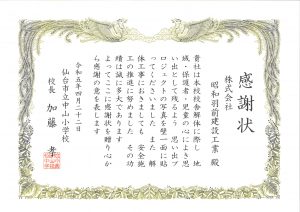 感謝状
株式会社
昭和羽前建設工業 殿
貴社は本校校舎解体に際し 地
域・保護者・児童の心によき思
い出として残るよう 思い出プ
ロジェクトの写真を壁一面に貼
ってくださいました また 解
体工事においても 安全施
工の推進に努めました その功
績は誠に多大であります
よってここに感謝状を贈り心か
ら感謝の意を表します
令和五年四月二十二日
仙台市立中山小学校
校長 加藤